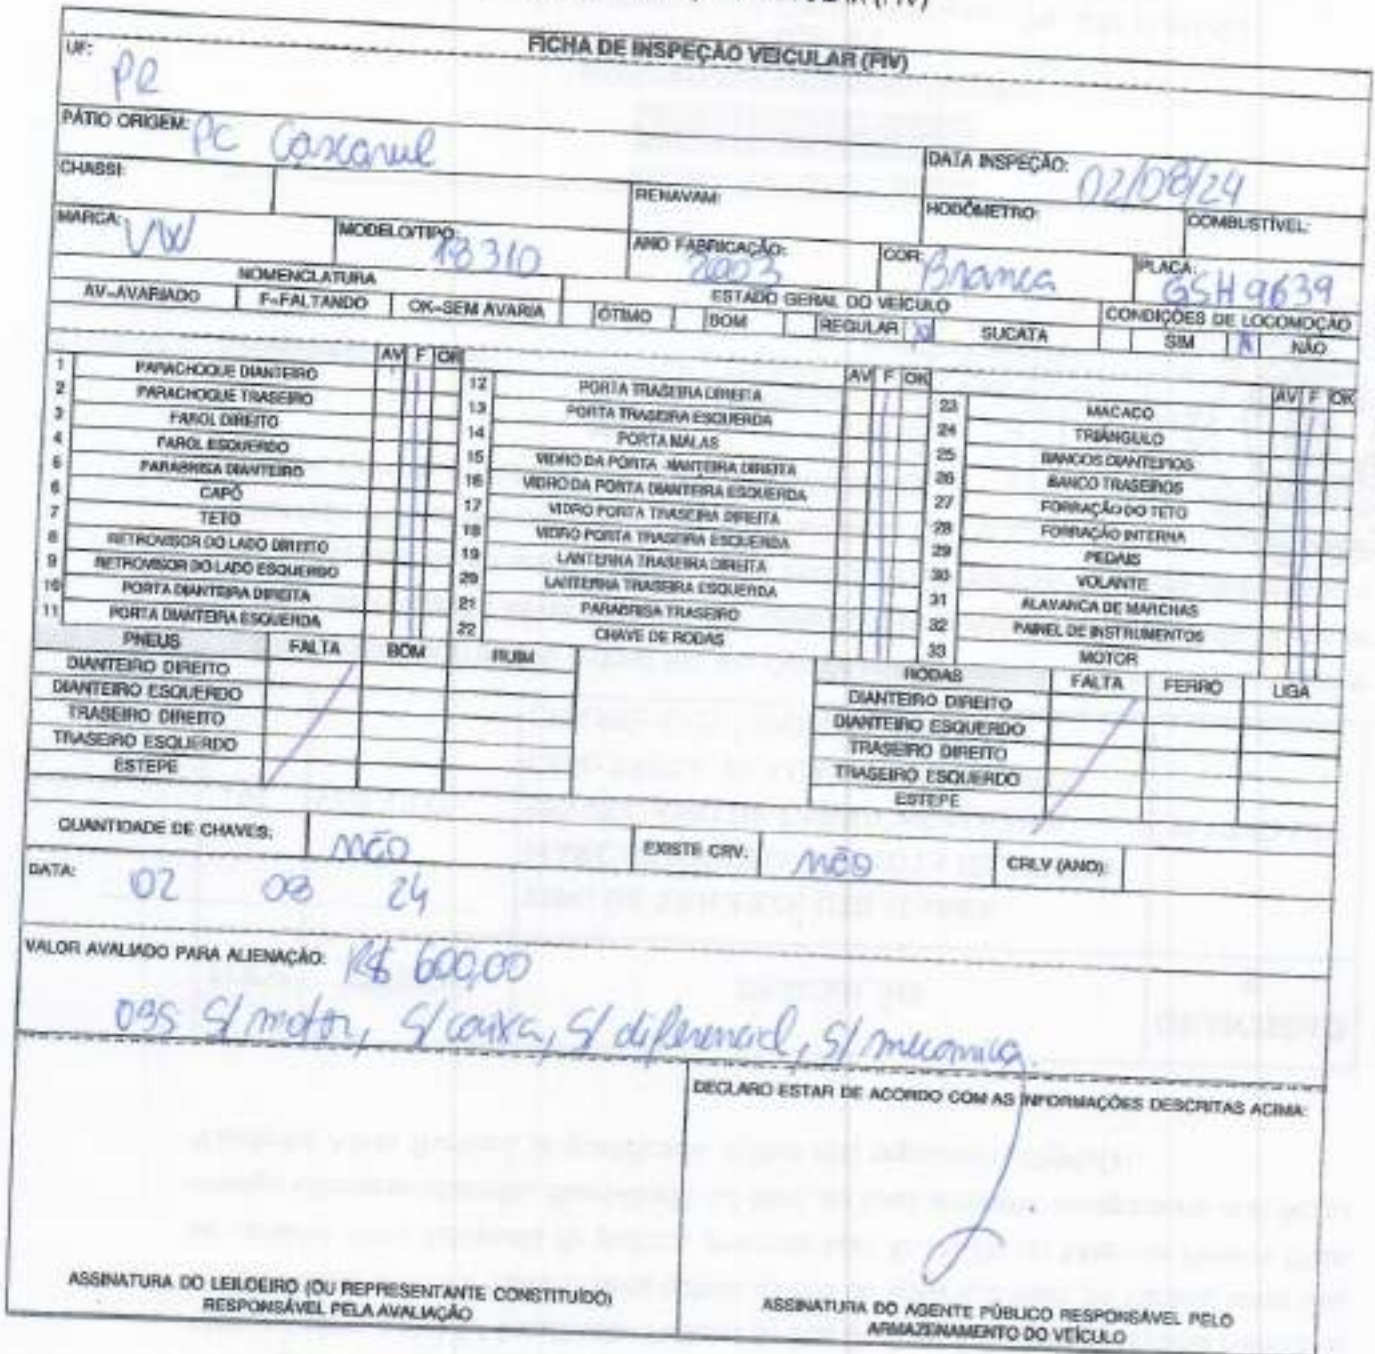 FICHA DE INSPEÇÃO VEICULAR (FIV)
UF: PR
PÁTIO ORIGEM: PC Cascavel
DATA INSPEÇÃO: 02/08/24
CHASSI:
RENAVAM:
HODÔMETRO:
COMBUSTÍVEL:
MARCA: VW
MODELO/TIPO: 18310
ANO FABRICAÇÃO: 2003
COR: Branca
PLACA: GSH 9639
NOMENCLATURA
ESTADO GERAL DO VEÍCULO
CONDIÇÕES DE LOCOMOÇÃO
AV-AVARIADO F-FALTANDO OK-SEM AVARIA ÓTIMO BOM REGULAR X SUCATA SIM X NÃO
AV F OK
1 PARACHOQUE DIANTEIRO
2 PARACHOQUE TRASEIRO
3 FAROL DIREITO
4 FAROL ESQUERDO
5 PARABRISA DIANTEIRO
6 CAPÔ
7 TETO
8 RETROVISOR DO LADO DIREITO
9 RETROVISOR DO LADO ESQUERDO
10 PORTA DIANTEIRA DIREITA
11 PORTA DIANTEIRA ESQUERDA
AV F OK
12 PORTA TRASEIRA DIREITA
13 PORTA TRASEIRA ESQUERDA
14 PORTA MALAS
15 VIDRO DA PORTA DIANTEIRA DIREITA
16 VIDRO DA PORTA DIANTEIRA ESQUERDA
17 VIDRO PORTA TRASEIRA DIREITA
18 VIDRO PORTA TRASEIRA ESQUERDA
19 LANTERNA TRASEIRA DIREITA
20 LANTERNA TRASEIRA ESQUERDA
21 PARABRISA TRASEIRO
22 CHAVE DE RODAS
AV F OK
23 MACACO
24 TRIÂNGULO
25 BANCOS DIANTEIROS
26 BANCO TRASEIROS
27 FORRAÇÃO DO TETO
28 FORRAÇÃO INTERNA
29 PEDAIS
30 VOLANTE
31 ALAVANCA DE MARCHAS
32 PAINEL DE INSTRUMENTOS
33 MOTOR
PNEUS FALTA BOM RUIM
DIANTEIRO DIREITO
DIANTEIRO ESQUERDO
TRASEIRO DIREITO
TRASEIRO ESQUERDO
ESTEPE
RODAS FALTA FERRO LIGA
DIANTEIRO DIREITO
DIANTEIRO ESQUERDO
TRASEIRO DIREITO
TRASEIRO ESQUERDO
ESTEPE
QUANTIDADE DE CHAVES: não EXISTE CRV: não CRLV (ANO):
DATA: 02 08 24
VALOR AVALIADO PARA ALIENAÇÃO: R$ 600,00
OBS S/ motor, S/ caixa, S/ diferencial, S/ mecanica.
DECLARO ESTAR DE ACORDO COM AS INFORMAÇÕES DESCRITAS ACIMA:
ASSINATURA DO LEILOEIRO (OU REPRESENTANTE CONSTITUÍDO)
RESPONSÁVEL PELA AVALIAÇÃO
ASSINATURA DO AGENTE PÚBLICO RESPONSÁVEL PELO
ARMAZENAMENTO DO VEÍCULO